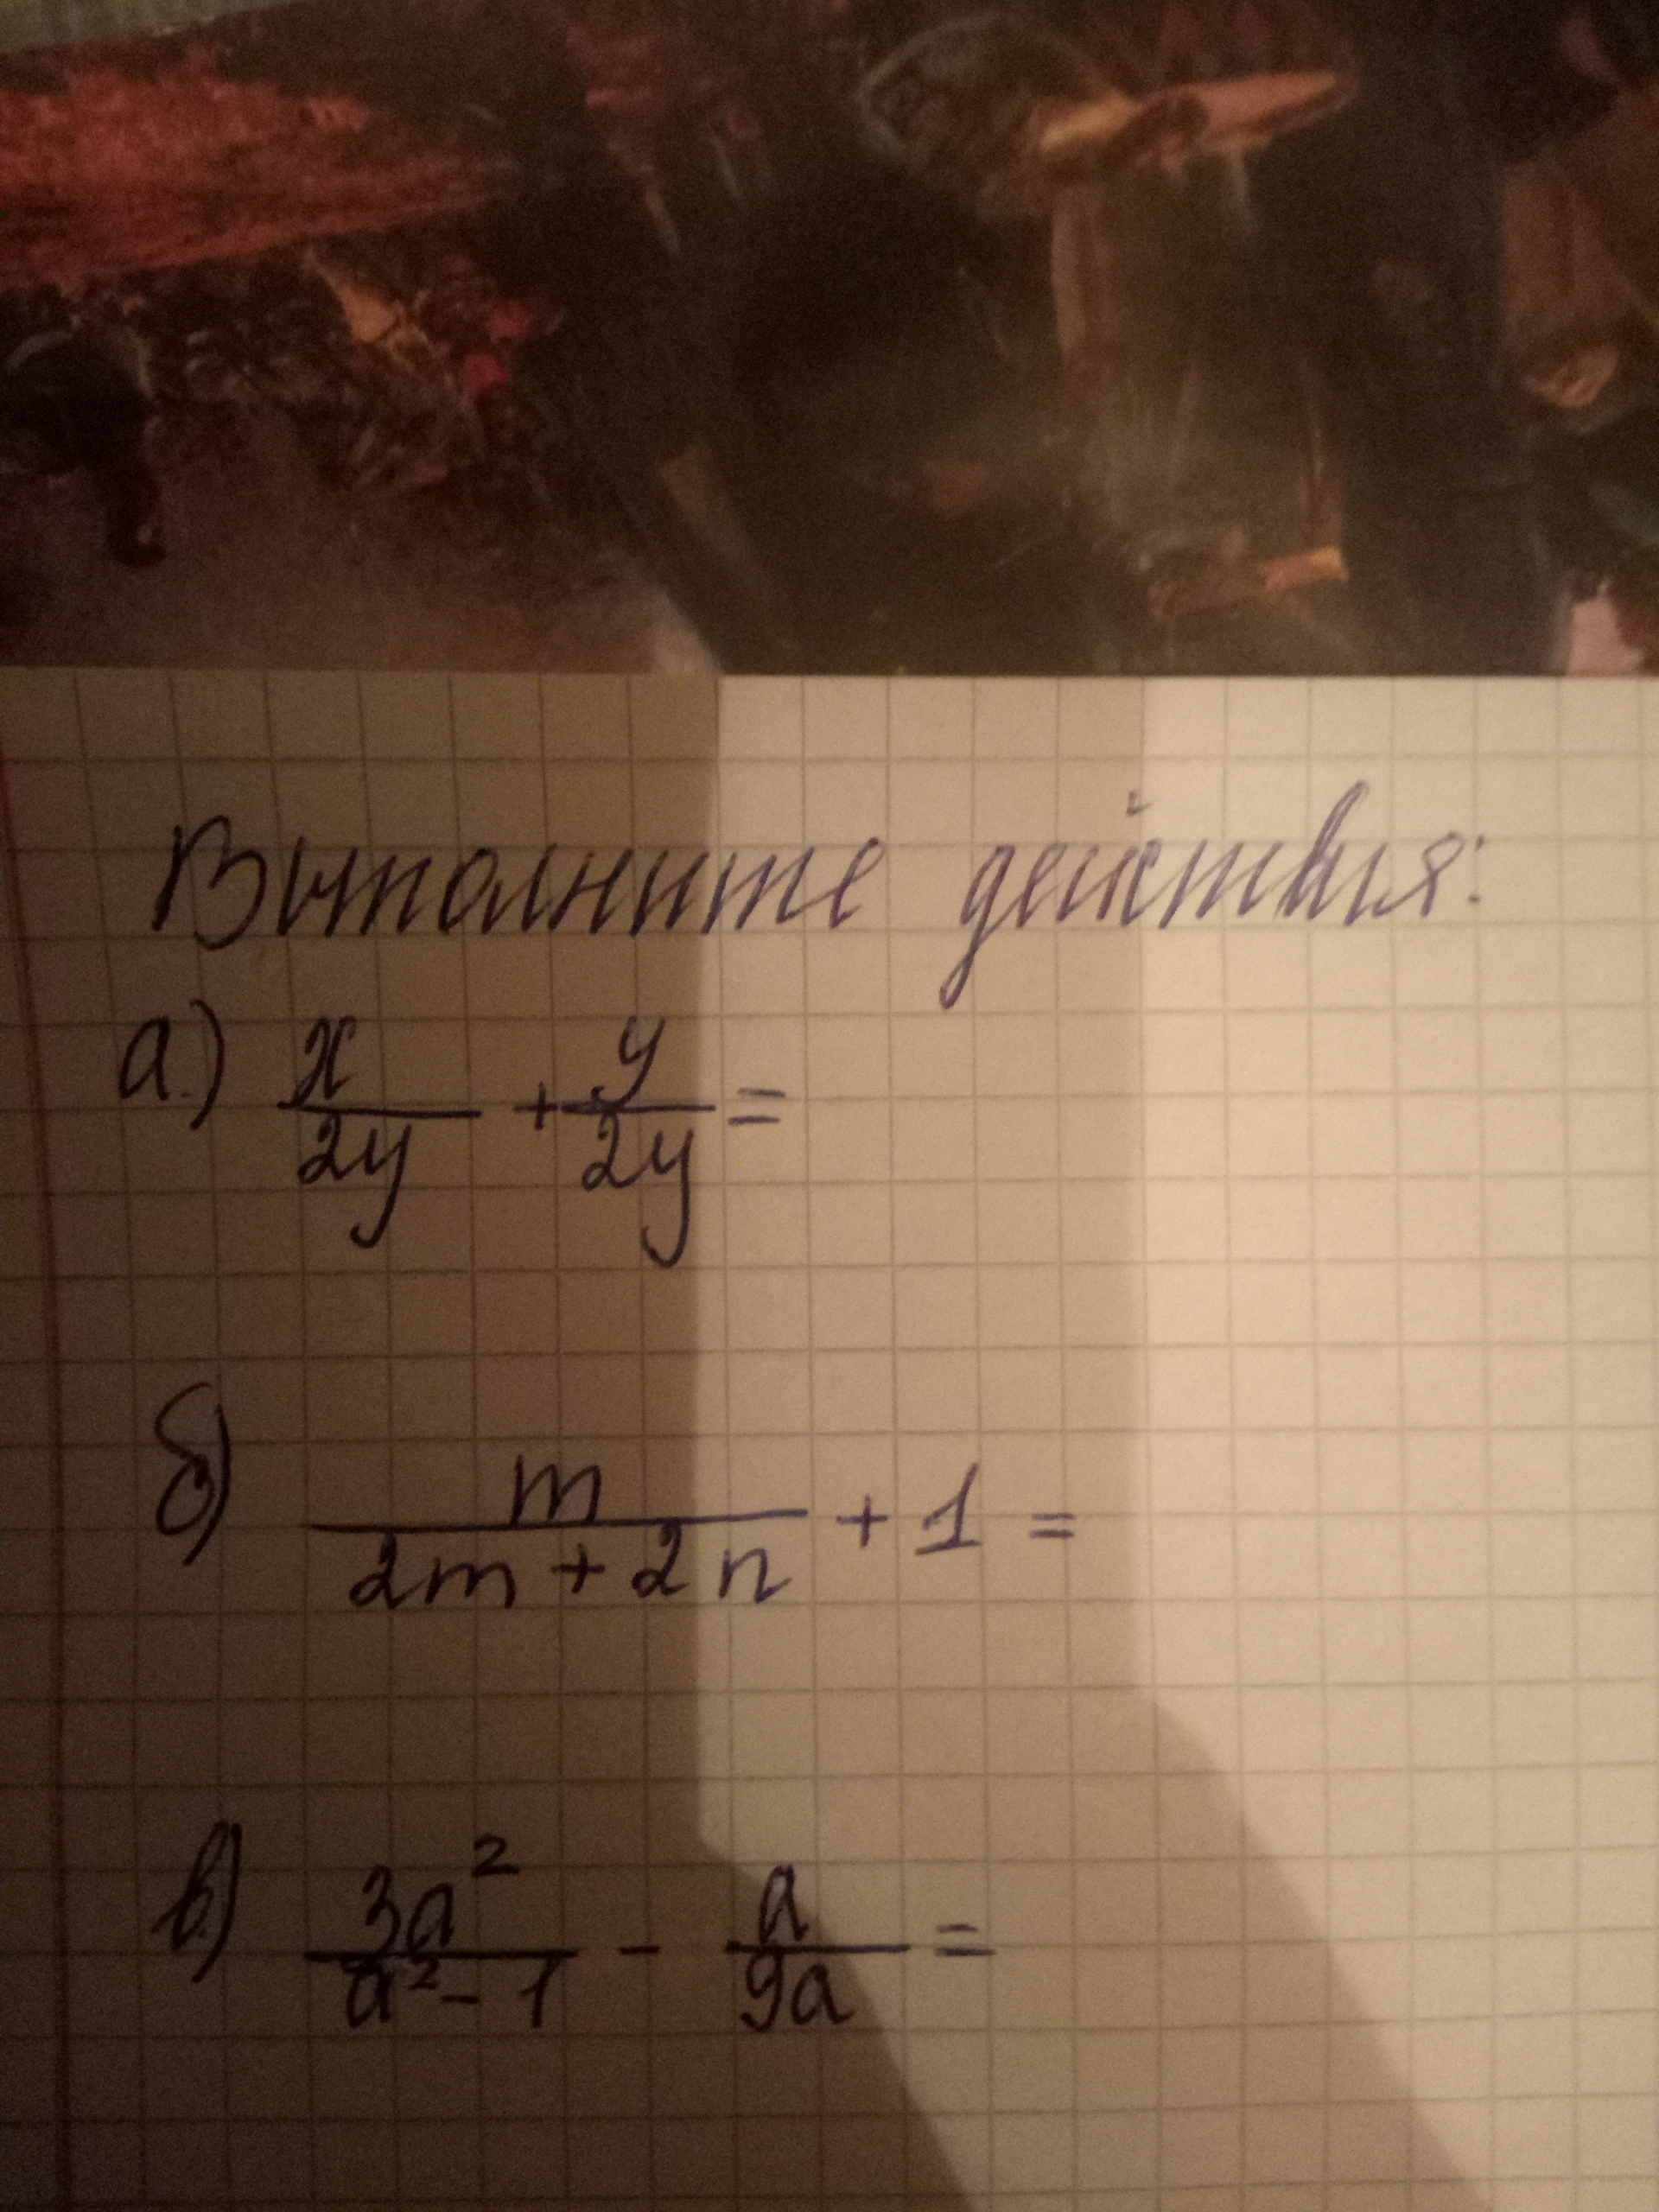 Выполните действия:
а.) x/2y + y/2y =
б) m/2m + 2n + 1 =
в) 3a²/a² - 1 - a/9a =